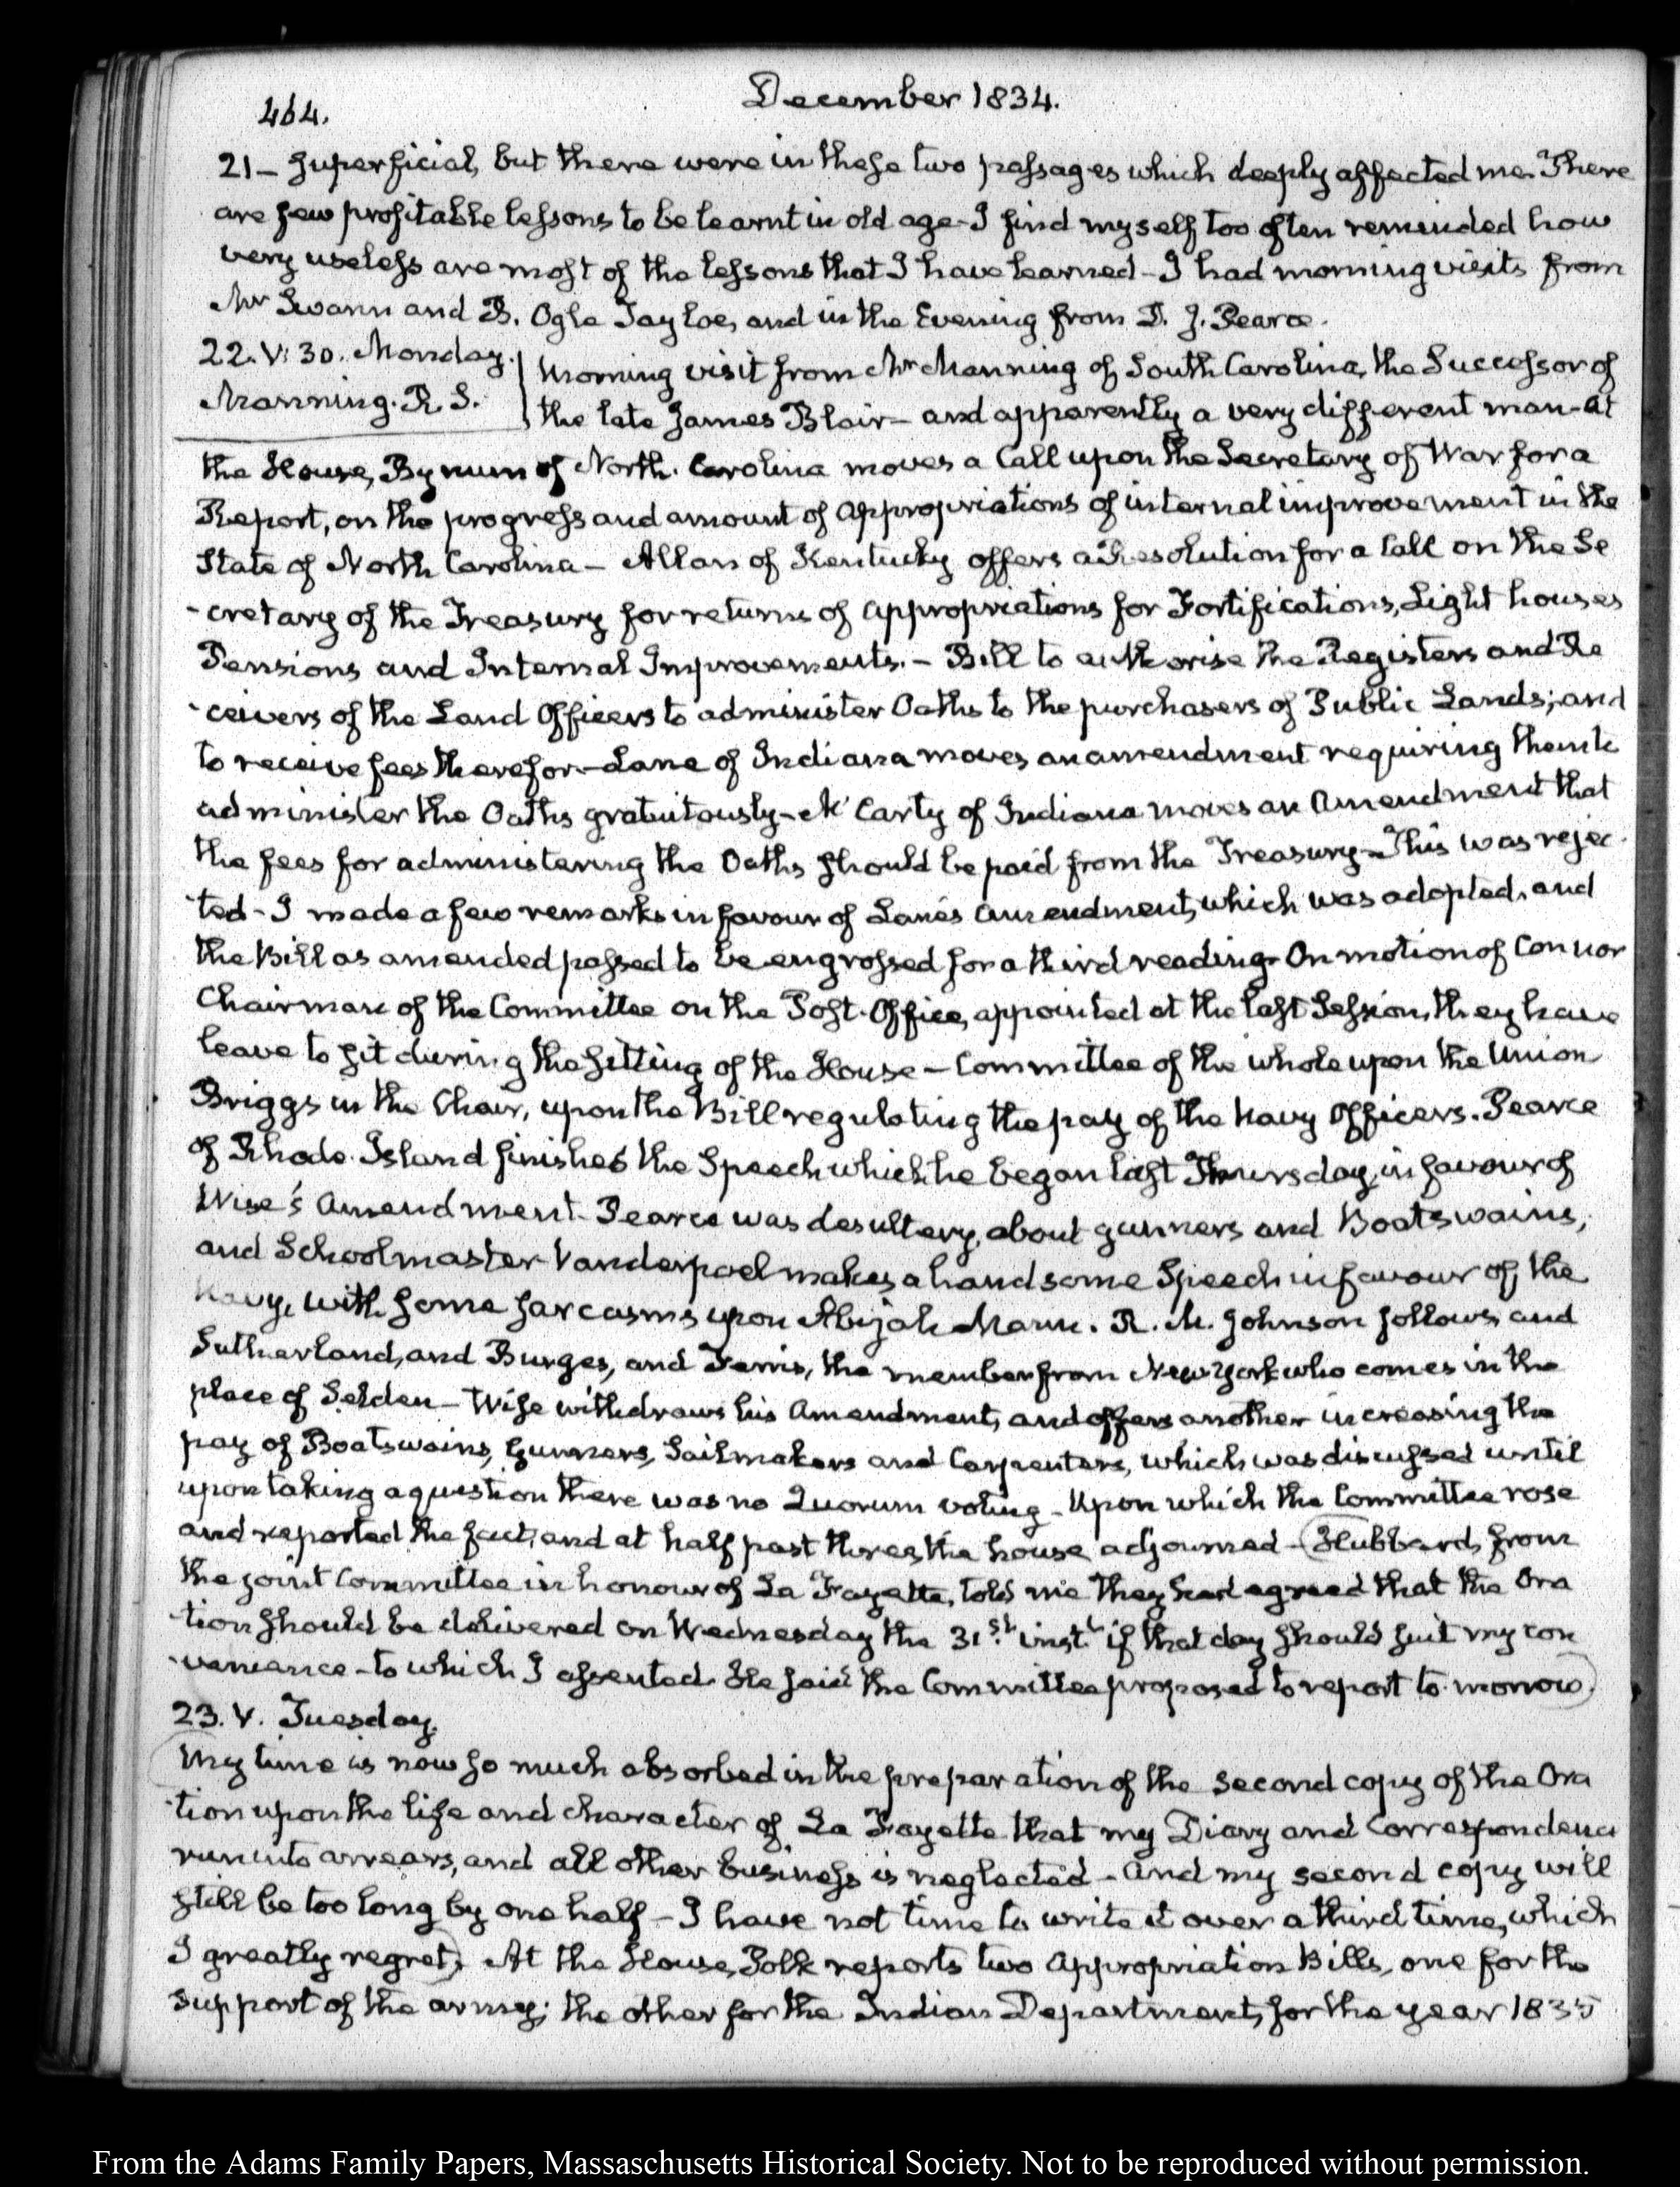 464.
December 1834.
21 — superficial, but there were in these two passages which deeply affected me. There
are few profitable lessons to be learnt in old age - I find myself too often reminded how
very useless are most of the lessons that I have learned - I had morning visits from
Mr Swann and B. Ogle Tayloe, and in the Evening from D. J. Pearce.
22. V: 30. Monday.
Manning. R. S.
Morning visit from Mr Manning of South Carolina, the Successor of
the late James Blair - and apparently a very different man - At
the House, Bynum of North Carolina moves a Call upon the Secretary of War for a
Report, on the progress and amount of appropriations of internal improvement in the
State of North Carolina - Allan of Kentucky offers a Resolution for a Call on the Se
-cretary of the Treasury for returns of appropriations for Fortifications, Light houses
Pensions and Internal Improvements. - Bill to authorise the Registers and Re
-ceivers of the Land Officers to administer Oaths to the purchasers of Public Lands; and
to receive fees therefor - Lane of Indiana moves an amendment requiring them to
administer the Oaths gratuitously - Mc Carty of Indiana moves an Amendment that
the fees for administering the Oaths should be paid from the Treasury - This was rejec
-ted - I made a few remarks in favour of Lane's Amendment, which was adopted, and
the Bill as amended passed to be engrossed for a third reading. On motion of Connor
Chairman of the Committee on the Post-Office, appointed at the last Session, they have
leave to sit during the sitting of the House - Committee of the whole upon the Union
Briggs in the Chair, upon the Bill regulating the pay of the Navy Officers. Pearce
of Rhode-Island finishes the Speech which he began last Thursday, in favour of
Wise's Amendment - Pearce was desultory, about gunners and Boatswains,
and Schoolmaster - Vanderpoel makes a handsome Speech in favour of the
Navy, with some sarcasms upon Abijah Mann. R. M. Johnson follows, and
Sutherland, and Burges, and Ferris, the member from New York who comes in the
place of Selden - Wise withdraws his Amendment, and offers another increasing the
pay of Boatswains, Gunners, Sailmakers and Carpenters, which was discussed until
upon taking a question there was no Quorum voting - Upon which the Committee rose
and reported the fact, and at half past three, the house adjourned - Hubbard, from
the joint Committee in honour of La Fayette, told me they had agreed that the Ora
-tion should be delivered on Wednesday the 31st. inst.t if that day should suit my con
-venience - to which I assented. He said the Committee proposed to report to-morrow.
23. V. Tuesday.
My time is now so much absorbed in the preparation of the second copy of the Ora
-tion upon the life and character of La Fayette that my Diary and Correspondence
run into arrears, and all other business is neglected - And my second copy will
still be too long by one half - I have not time to write it over a third time, which
I greatly regret. At the House, Polk reports two Appropriation Bills, one for the
support of the army; the other for the Indian Department, for the year 1835
From the Adams Family Papers, Massaschusetts Historical Society. Not to be reproduced without permission.